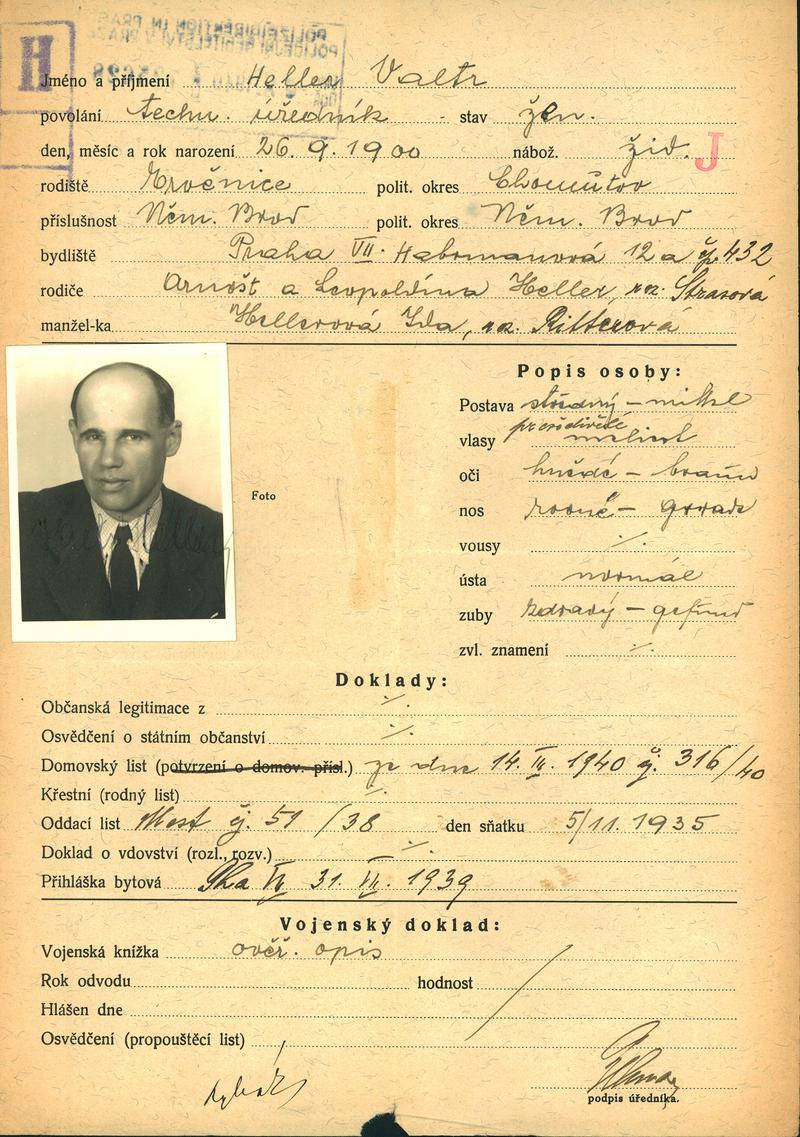 H
POLIZEIDIREKTION IN PRAG
POLICEJNÍ ŘEDITELSTVÍ V PRAZE
Jméno a příjmení Heller Valtr
povolání techn. úředník - stav žen.
den, měsíc a rok narození 26. 9. 1900 nábož. žid. J
rodiště polit. okres Chomutov
příslušnost Něm. Brod polit. okres Něm. Brod
bydliště Praha VII. Habrmanová 12a čp. 432
rodiče Arnošt a Leopoldina Heller, roz. Strasová
manžel-ka Hellerová Ida, roz. Ritterová
Popis osoby:
Postava střední – mittel
vlasy prošedivělé meliert
oči hnědé – braun
Foto
nos rovné – gerade
vousy ./.
ústa normál
zuby zdravý – gesund
zvl. znamení ./.
Doklady:
Občanská legitimace z ./.
Osvědčení o státním občanství ./.
Domovský list (potvrzení o domov. přísl.) ze dne 14. III. 1940 č. 316/40
Křestní (rodný list) ./.
Oddací list Most čj. 51/38 den sňatku 5/11. 1935
Doklad o vdovství (rozl., rozv.) ./.
Přihláška bytová Pha 31. 1939
Vojenský doklad:
Vojenská knížka ověř. opis
Rok odvodu hodnost
Hlášen dne
Osvědčení (propouštěcí list)
podpis úředníka.